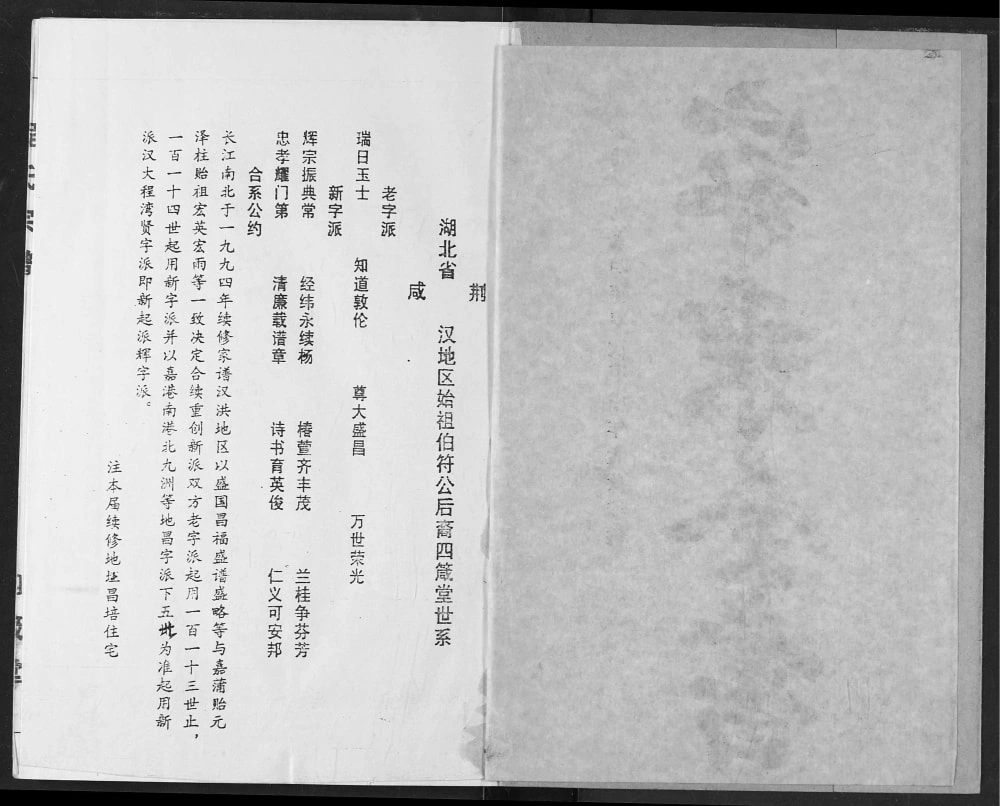 荆
湖北省　汉地区始祖伯符公后裔四箴堂世系
咸
老字派
瑞日玉士　知道敦伦　尊大盛昌　万世荣光
新字派
辉宗振典常　经纬永续杨　椿萱齐丰茂　兰桂争芬芳
忠孝耀门第　清廉载谱章　诗书育英俊　仁义可安邦
合系公约
长江南北于一九九四年续修家谱汉洪地区以盛国昌福盛谱盛略等与嘉蒲贻元
泽柱贻祖宏英宏雨等一致决定合续重创新派双方老字派起用一百一十三世止，
一百一十四世起用新字派并以嘉港南港北九洲等地昌字派下五世为准起用新
派汉大程湾贤字派即新起派辉字派。
注本届续修地址昌培住宅
程氏宗谱
四箴堂